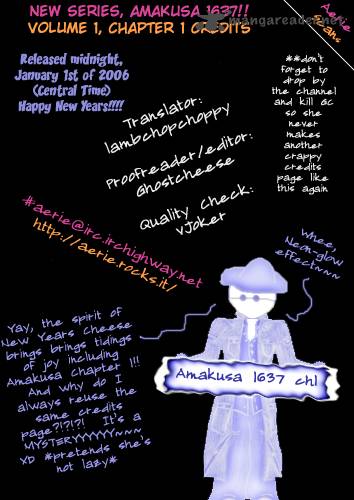 NEW SERIES, AMAKUSA 1637!!
VOLUME 1, CHAPTER 1 CREDITS
mangareader.net
Aerie
Scans
Released midnight,
January 1st of 2006
(Central Time)
Happy New Years!!!!
**don't
forget to
drop by
the channel
and kill GC
so she
never
makes
another
crappy
credits
page like
this again
Translator:
lambchopchoppy
Proofreader/editor:
Ghostcheese
Quality check:
vJoker
#aerie@irc.irchighway.net
http://aerie.rocks.it/
Whee,
Neon-glow
effect~~~
Yay, the spirit of
New Years cheese
brings brings tidings
of joy including
Amakusa chapter 1!!
And why do I
always reuse the
same credits
page?!?!?! It's a
MYSTERYYYYYY~~~
XD *pretends she's
not lazy*
Amakusa 1637 ch1